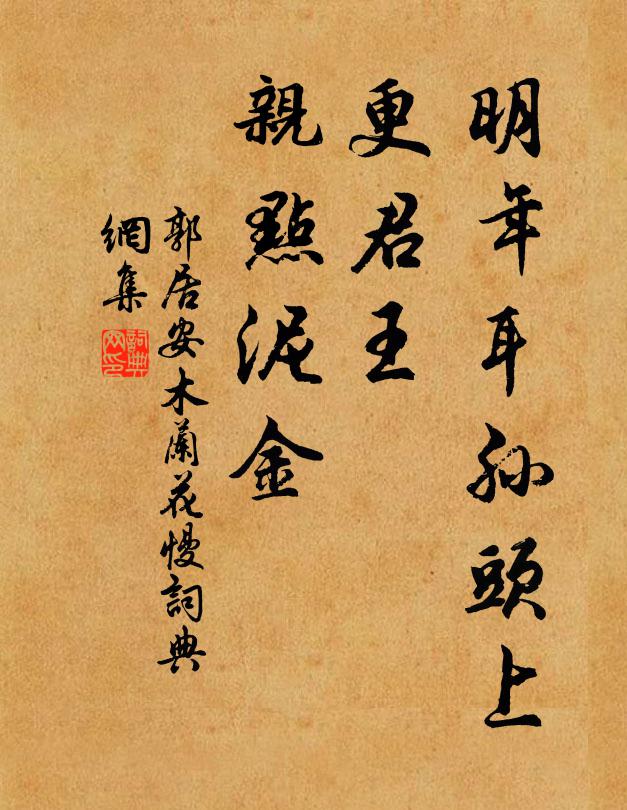 明年耳孫頭上
更君王
親點泥金
郭居安木蘭花慢詞典
網集
詞典
网印